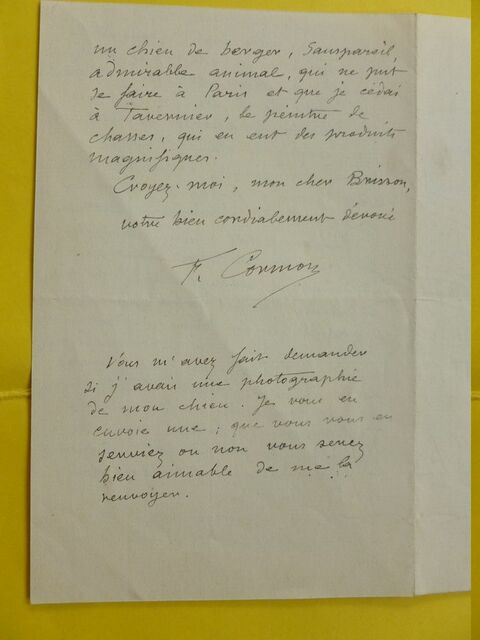 un chien de berger, Sanspareil,
admirable animal, qui ne put
se faire à Paris et que je cédai
à Tavernier, le peintre de
chasses, qui en eut des produits
magnifiques.
Croyez-moi, mon cher Brisson,
votre bien cordialement dévoué
F. Cormon
Vous m'avez fait demander
si j'avais une photographie
de mon chien. Je vous en
envoie une ; que vous vous en
serviez ou non vous serez
bien aimable de me la
renvoyer.